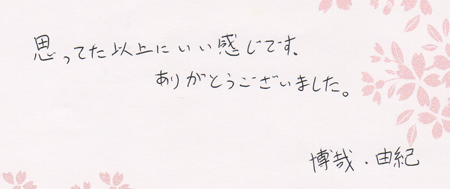 思ってた以上にいい感じです、
ありがとうございました。
博哉・由紀